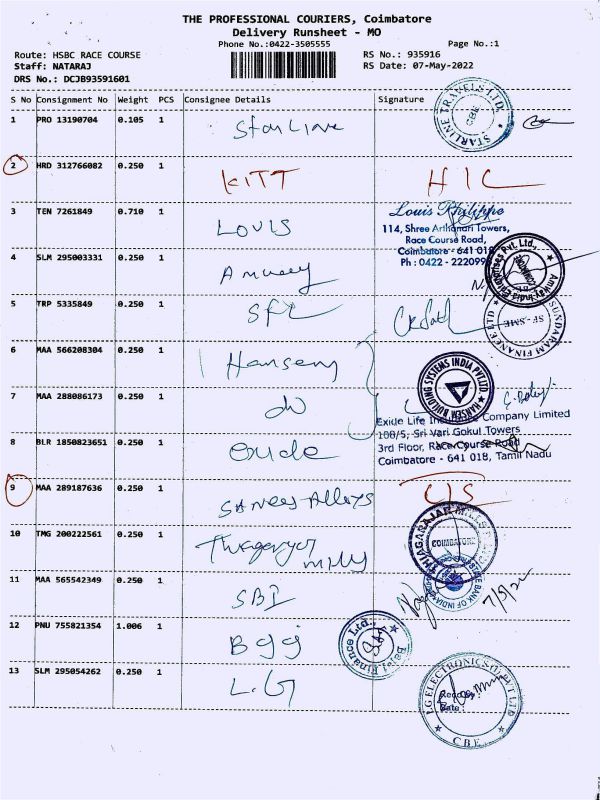 THE PROFESSIONAL COURIERS, Coimbatore
Delivery Runsheet - MO
Phone No.:0422-3505555
Page No.:1
Route: HSBC RACE COURSE
RS No.: 935916
Staff: NATARAJ
RS Date: 07-May-2022
DRS No.: DCJB93591601
S No Consignment No Weight PCS Consignee Details Signature
1 PRO 13190704 0.105 1 Starline
STARLINE TRAVELS LTD. CBE
2 HRD 312766082 0.250 1 KITT HIC
3 TEN 7261849 0.710 1 LOUIS
Louis Philippe
114, Shree Arthanari Towers,
Race Course Road,
Coimbatore - 641 018
Ph : 0422 - 222099
4 SLM 295003331 0.250 1 Amway
5 TRP 5335849 0.250 1
SUNDARAM FINANCE LTD SF-SME
6 MAA 566208304 0.250 1 Hansen
HANSEN BUILDING SYSTEMS INDIA PVT.LTD
7 MAA 288086173 0.250 1 do
Exide Life Company Limited
108/5, Sri Vari Gokul Towers
3rd Floor, Race Course Road
Coimbatore - 641 018, Tamil Nadu
8 BLR 1850823651 0.250 1 Exide
9 MAA 289187636 0.250 1 Alloys
10 TMG 200222561 0.250 1
THIAGARAJAR MILLS COIMBATORE
11 MAA 565542349 0.250 1 SBI
BANK OF INDIA
7/5/22
12 PNU 755821354 1.006 1
Bajaj Finance Ltd.,
13 SLM 295054262 0.250 1 L.G
LG ELECTRONICS (I) PVT LTD
Date
C.B.E.